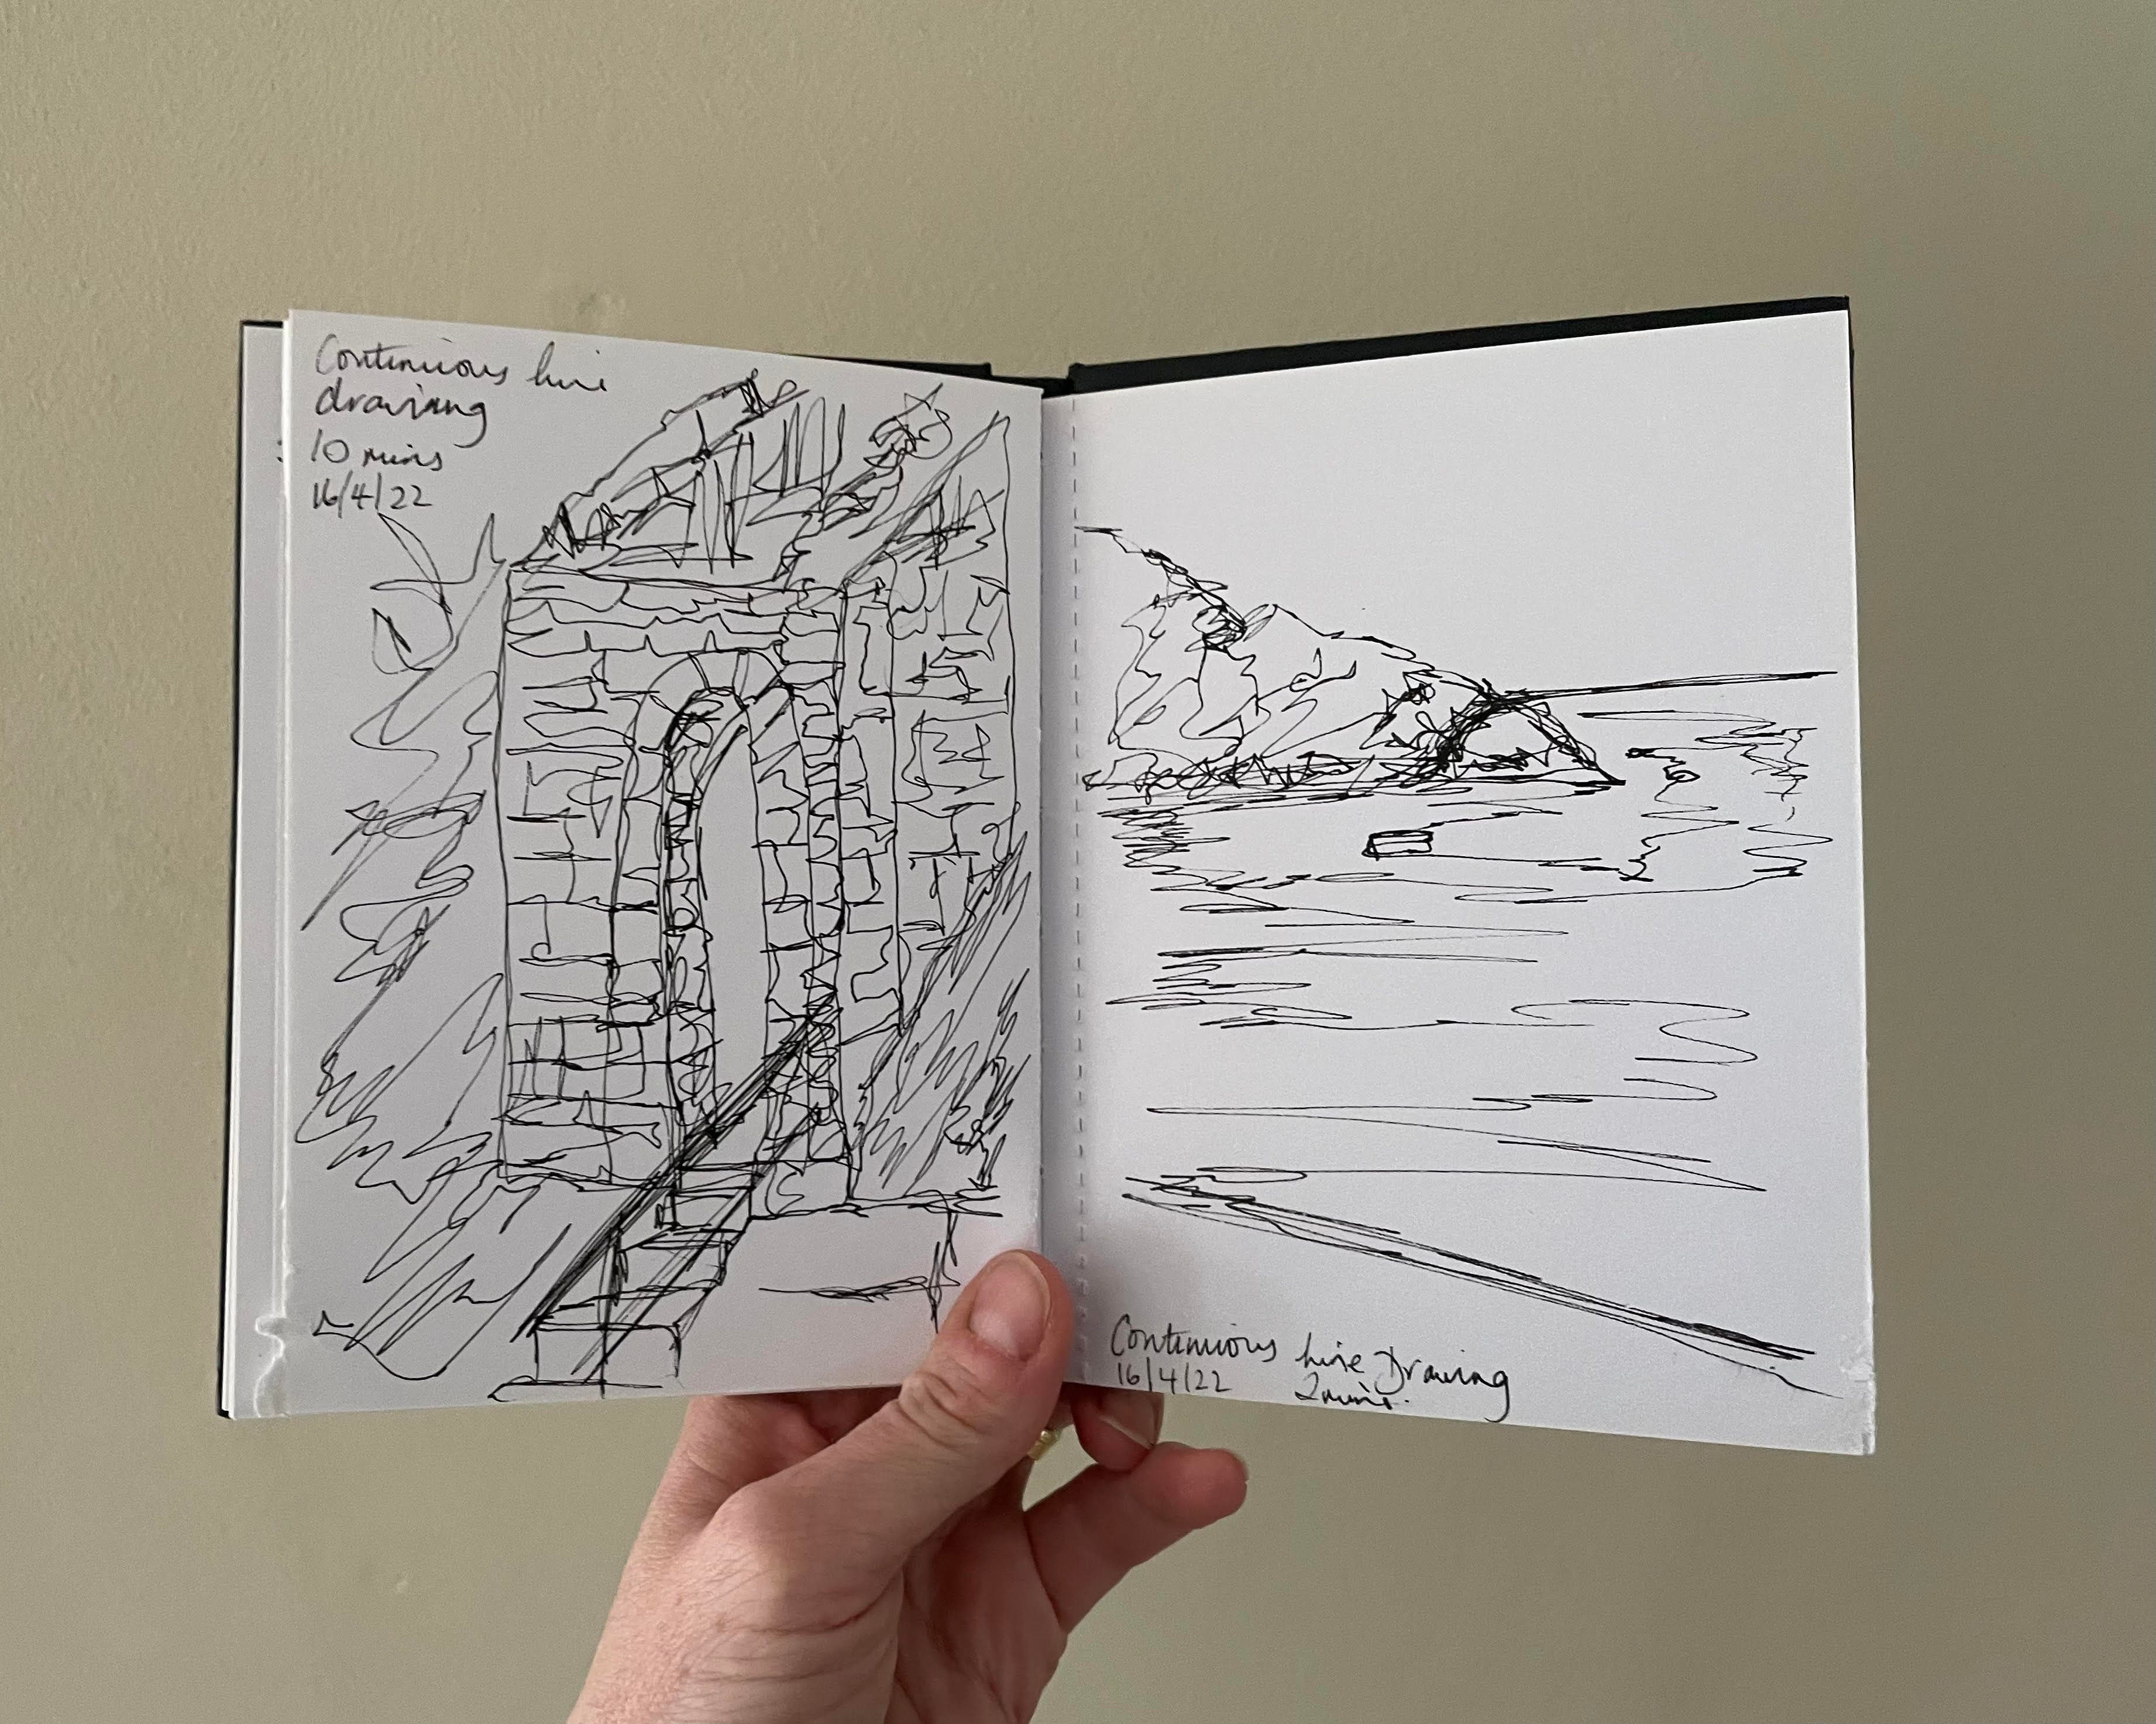 Continuous line
drawing
10 mins
16/4/22
Continuous line Drawing
16/4/22 2 mins.